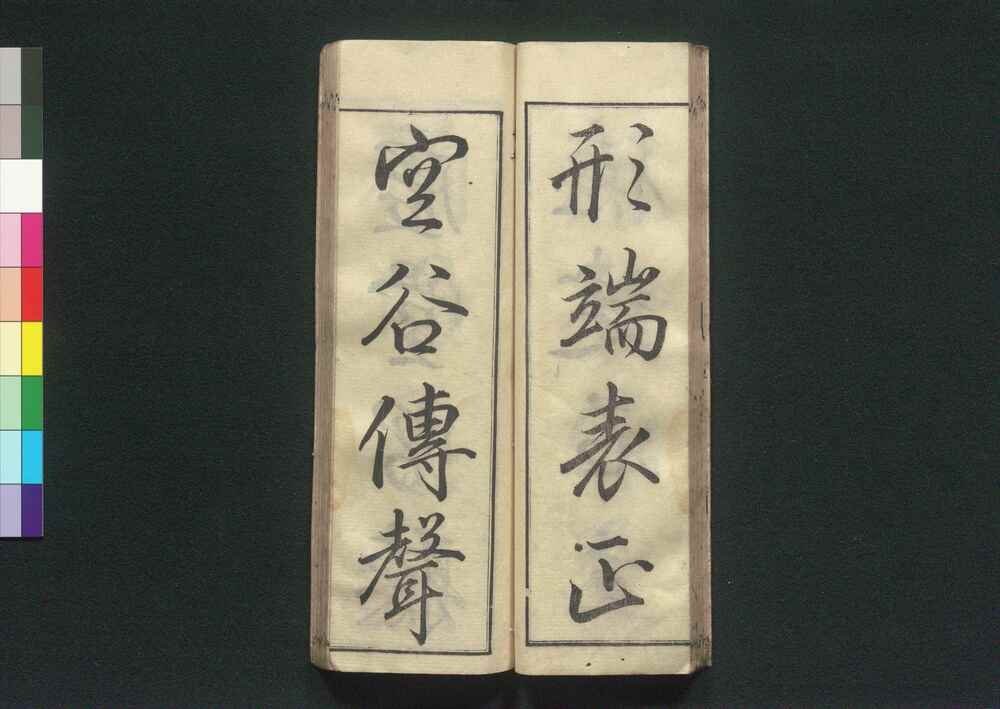 形端表正
空谷傳聲